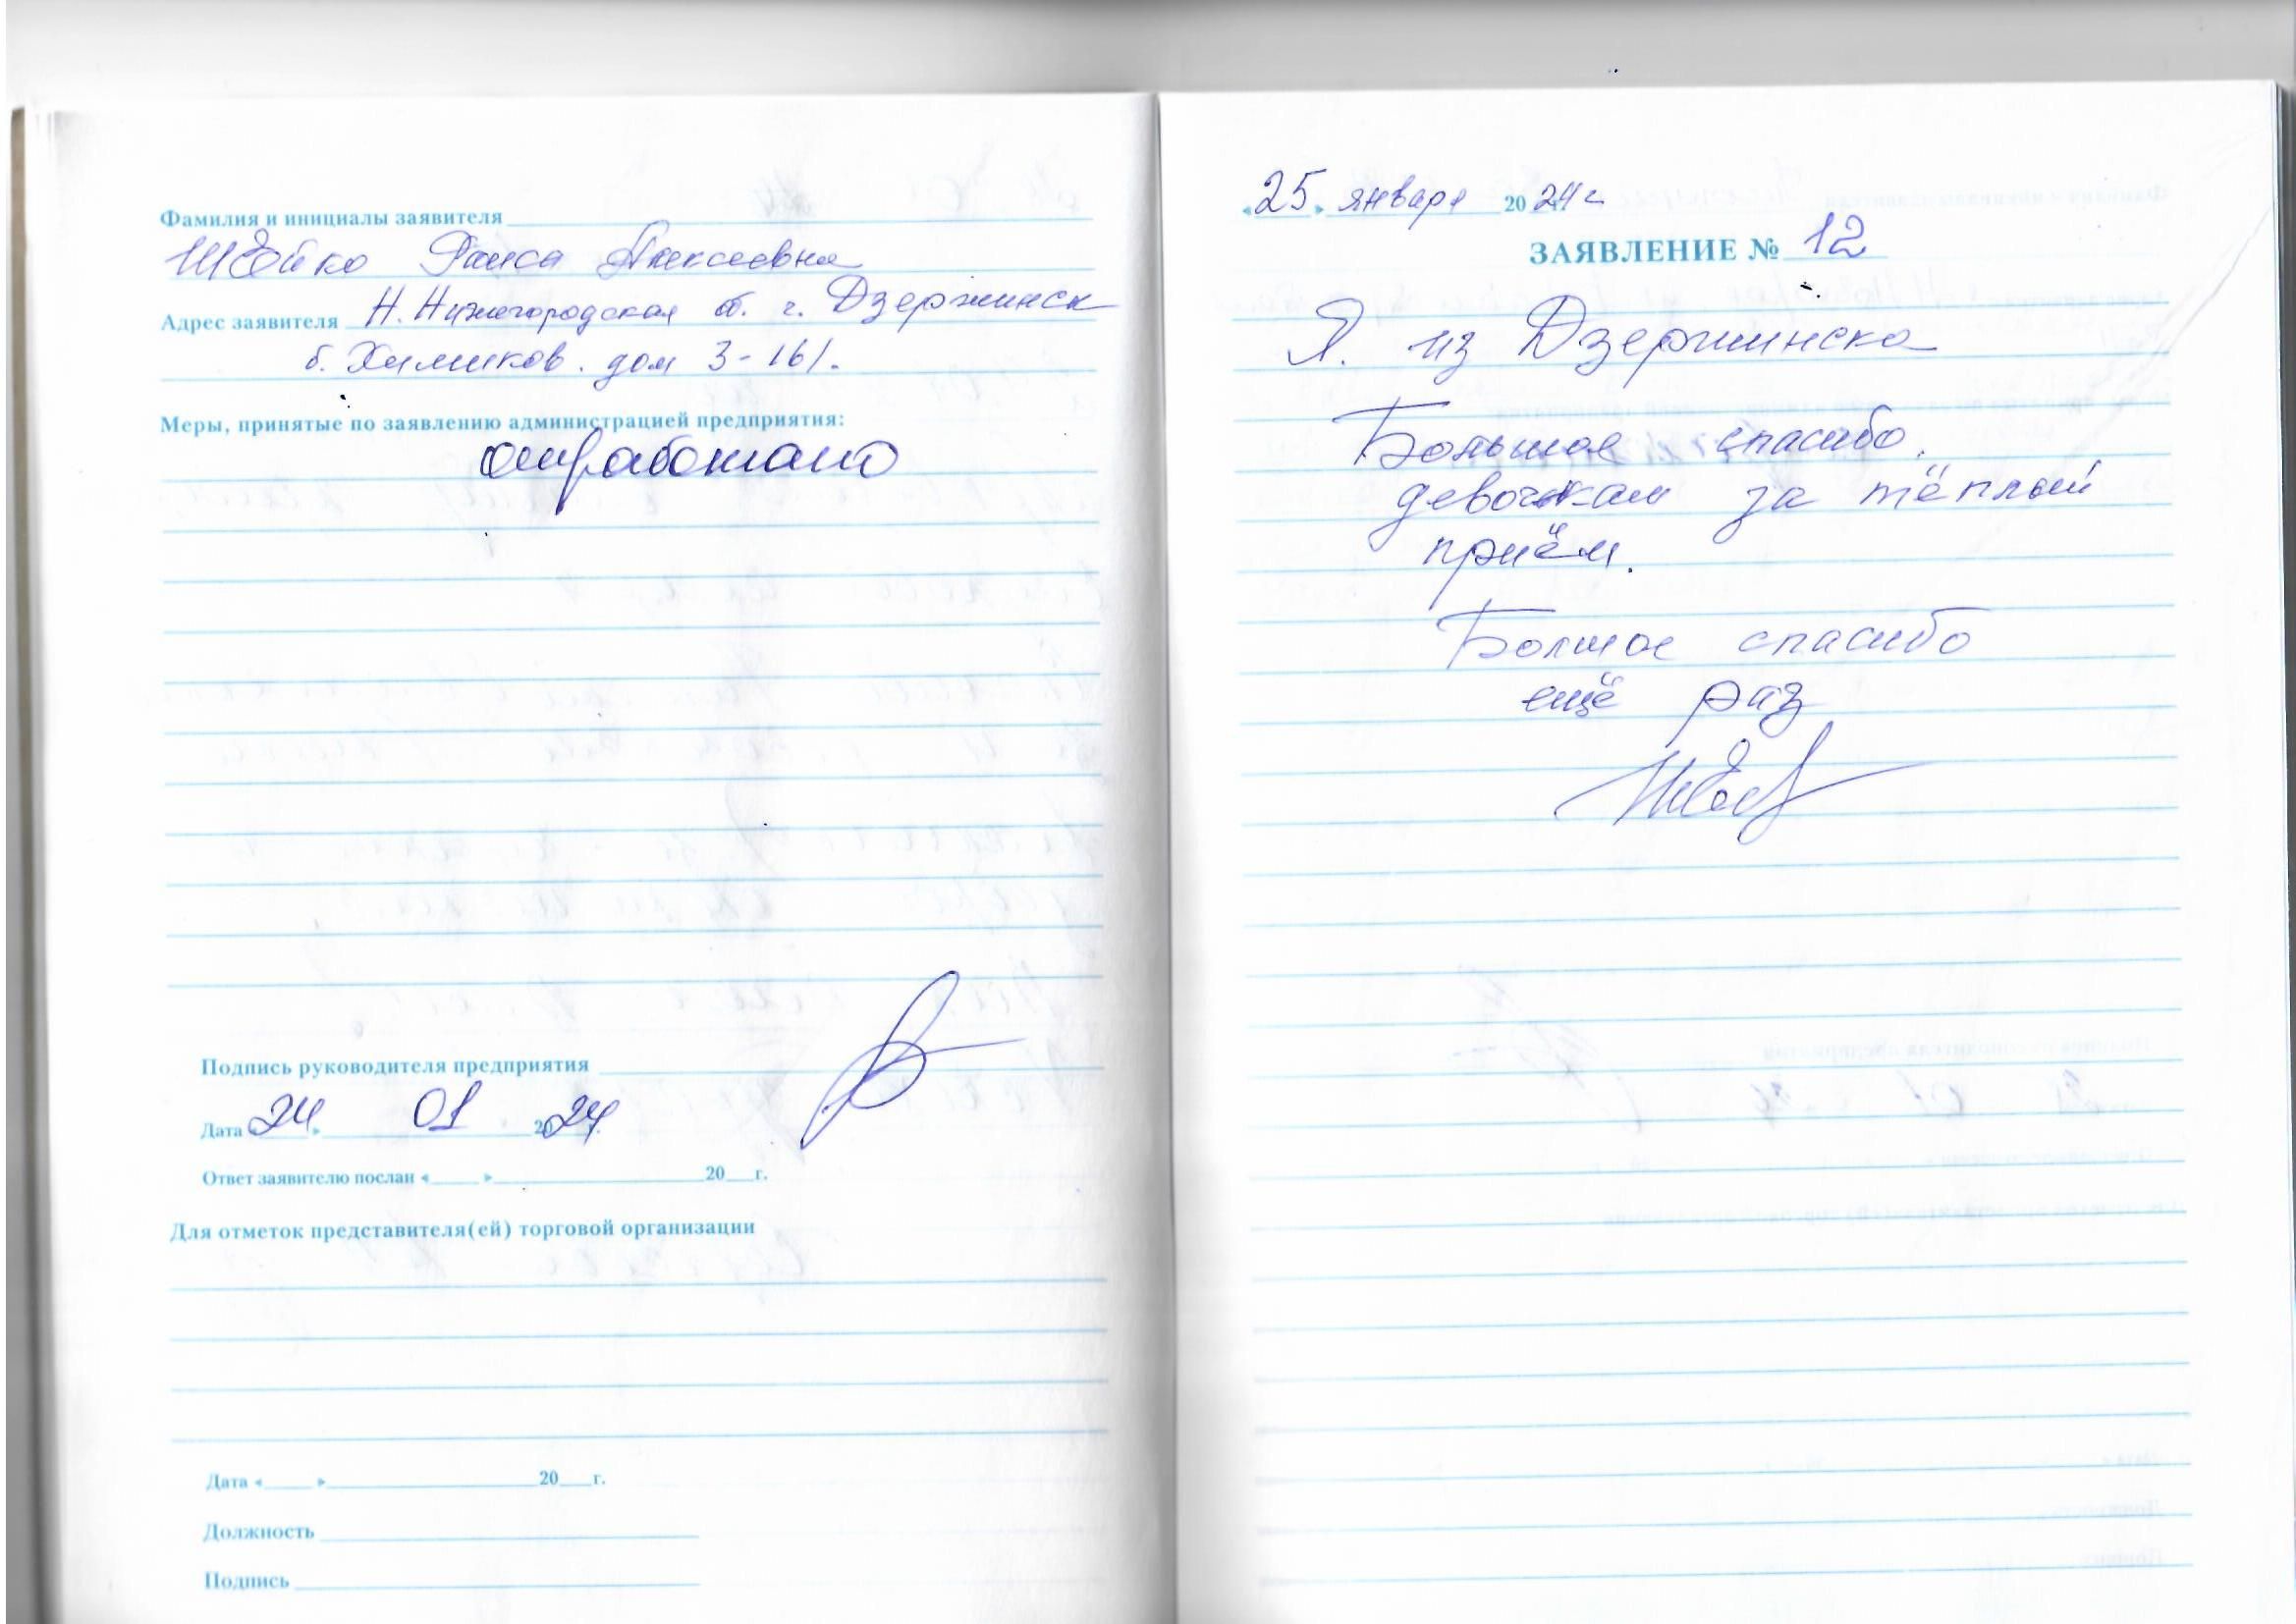 Фамилия и инициалы заявителя
Швойко Раиса Алексеевна
Адрес заявителя Н. Нижегородская об. г. Дзержинск
б. Химиков. дом 3-161.
Меры, принятые по заявлению администрацией предприятия:
отработано
Подпись руководителя предприятия
Дата «24» 01 2024 г.
Ответ заявителю послан « » 20 г.
Для отметок представителя(ей) торговой организации
Дата « » 20 г.
Должность
Подпись
«25» января 2024 г
ЗАЯВЛЕНИЕ № 12
Я. из Дзержинска
Большое спасибо.
девочкам за тёплый
приём.
Болшое спасибо
ещё раз